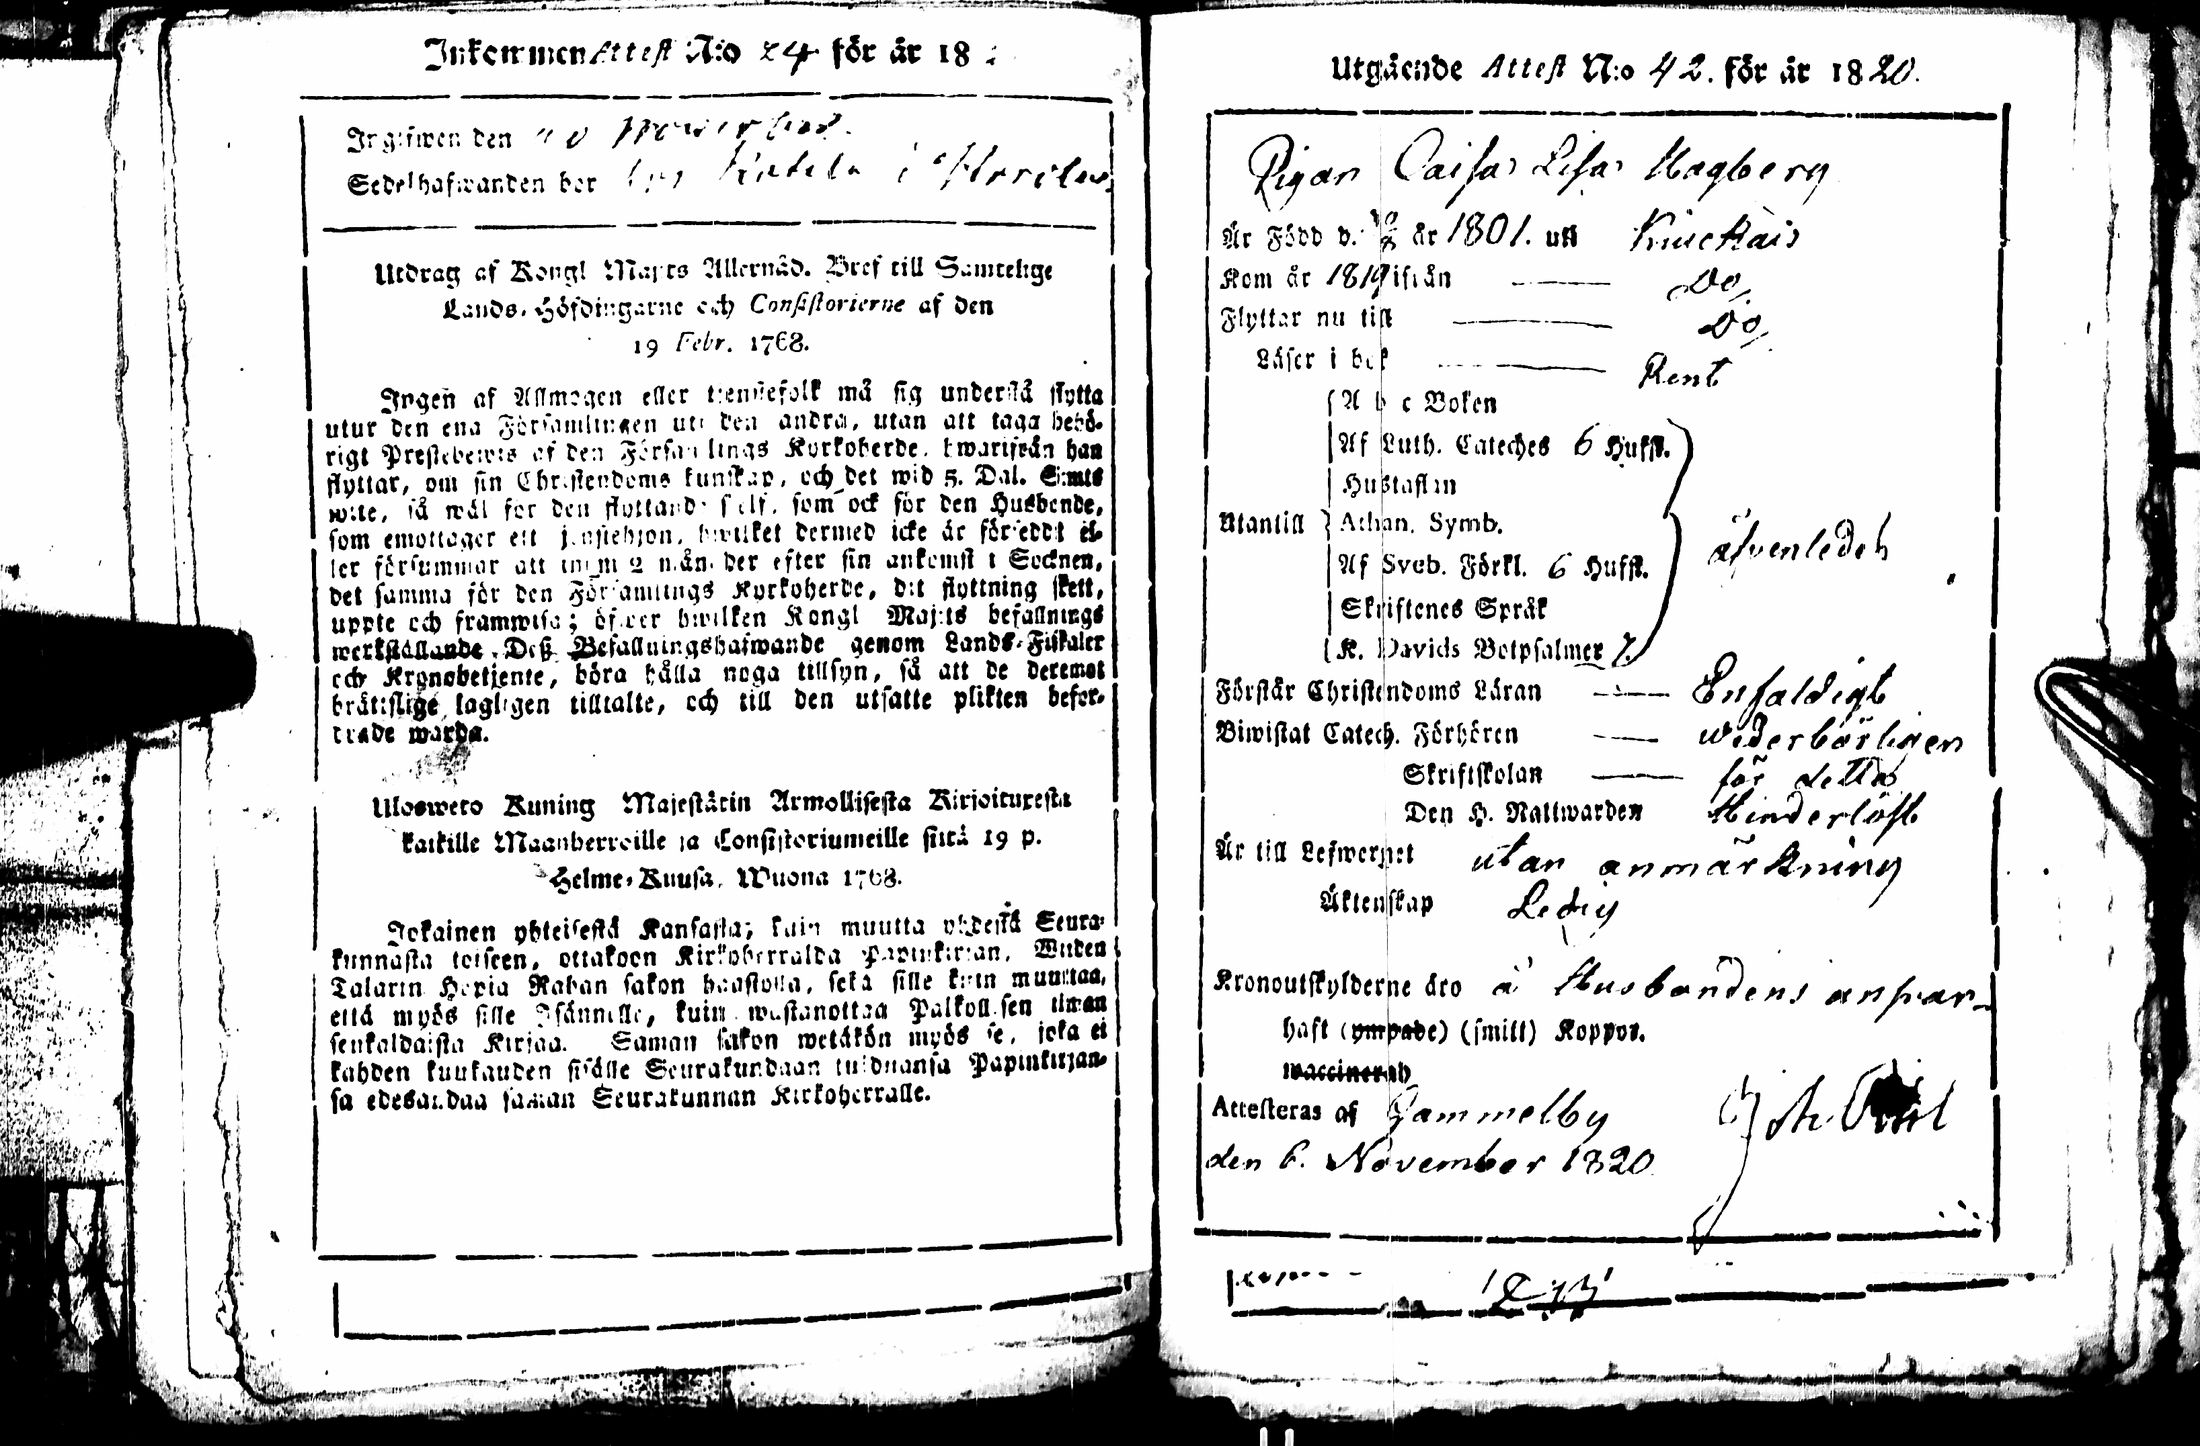 Inkommen Attest N:o 24 för år 18
Ingifwen den November.
Sedelhafwanden bor hos i
Utdrag af Kongl Majts Allernåd. Bref till Samtelige
Lands-Höfdingarne och Consistorierne af den
19 Febr. 1768.
Ingen af Allmogen eller tjenstefolk må sig understå flytta
utur den ena Församlingen uti den andra, utan att taga behö-
rigt Prestebewis af den Församlings Kyrkoherde, hwarifrån han
flyttar, om sin Christendoms kunskap, och det wid 5. Dal. S:mts
wite, så wäl för den flyttande self, som ock för den Husbonde,
som emottager ett tjenstehjon, hwilket dermed icke är förseddt el-
ler försummar att inom 2 månader efter sin ankomst i Socknen,
det samma för den Församlings Kyrkoherde, dit flyttning skett,
uppte och framwisa; öfwer hwilken Kongl Maj:ts befallnings
werkställande, Deß Befallningshafwande genom Lands-Fiskaler
och Kronobetjente, böra hålla noga tillsyn, så att de deremot
brättslige lagligen tilltalte, och till den utsatte plikten befor-
drade warda.
Ulosweto Kuning Majestätin Armollisesta Kirjoituxesta
kaikille Maanherroille ja Consistoriumeille siitä 19 p.
Helme-Kuusa, Wuona 1768.
Jokainen yhteisestä Kansasta; kuin muutta yhdestä Seura-
kunnasta toiseen, ottakoon Kirkoherralda Papinkirjan, Wiiden
Talarin Hopia Rahan sakon haastolla, sekä sille kuin muuttaa,
että myös sille Isännälle, kuin wastanottaa Palkollisen ilman
senkaldaista Kirjaa. Saman sakon wetäkön myös se, joka ei
kahden kuukauden sisälle Seurakundaan tulduansa Papinkirjan-
sa edesandaa saman Seurakunnan Kirkoherralle.
Utgående Attest N:o 42. för år 1820.
Pigan Caisa Lisa Hagberg
Är Född d. år 1801. uti Kiuckais
Kom år 1819 ifrån Do,
Flyttar nu till Do,
Läser i bok Rent
A b c Boken
Af Luth. Cateches 6 Hufst.
Hustaflan
Utantill Athan. Symb. äfvenledes
Af Sveb. Förkl. 6 Hufst.
Skriftenes Språk
K. Davids Botpsalmer 7.
Förstår Christendoms Läran Enfaldigt
Biwistat Catech. Förhören wederbörligen
Skriftskolan för detta
Den H. Nattwarden Hinderlöst
Är till Lefwernet utan anmärkning
Äktenskap Ledig
Kronoutskylderne äro å Husbondens ansvar
haft (ympade) (smitt) Koppor.
waccinerad
Attesteras af Gammelby Joh.
den 6. November 1820